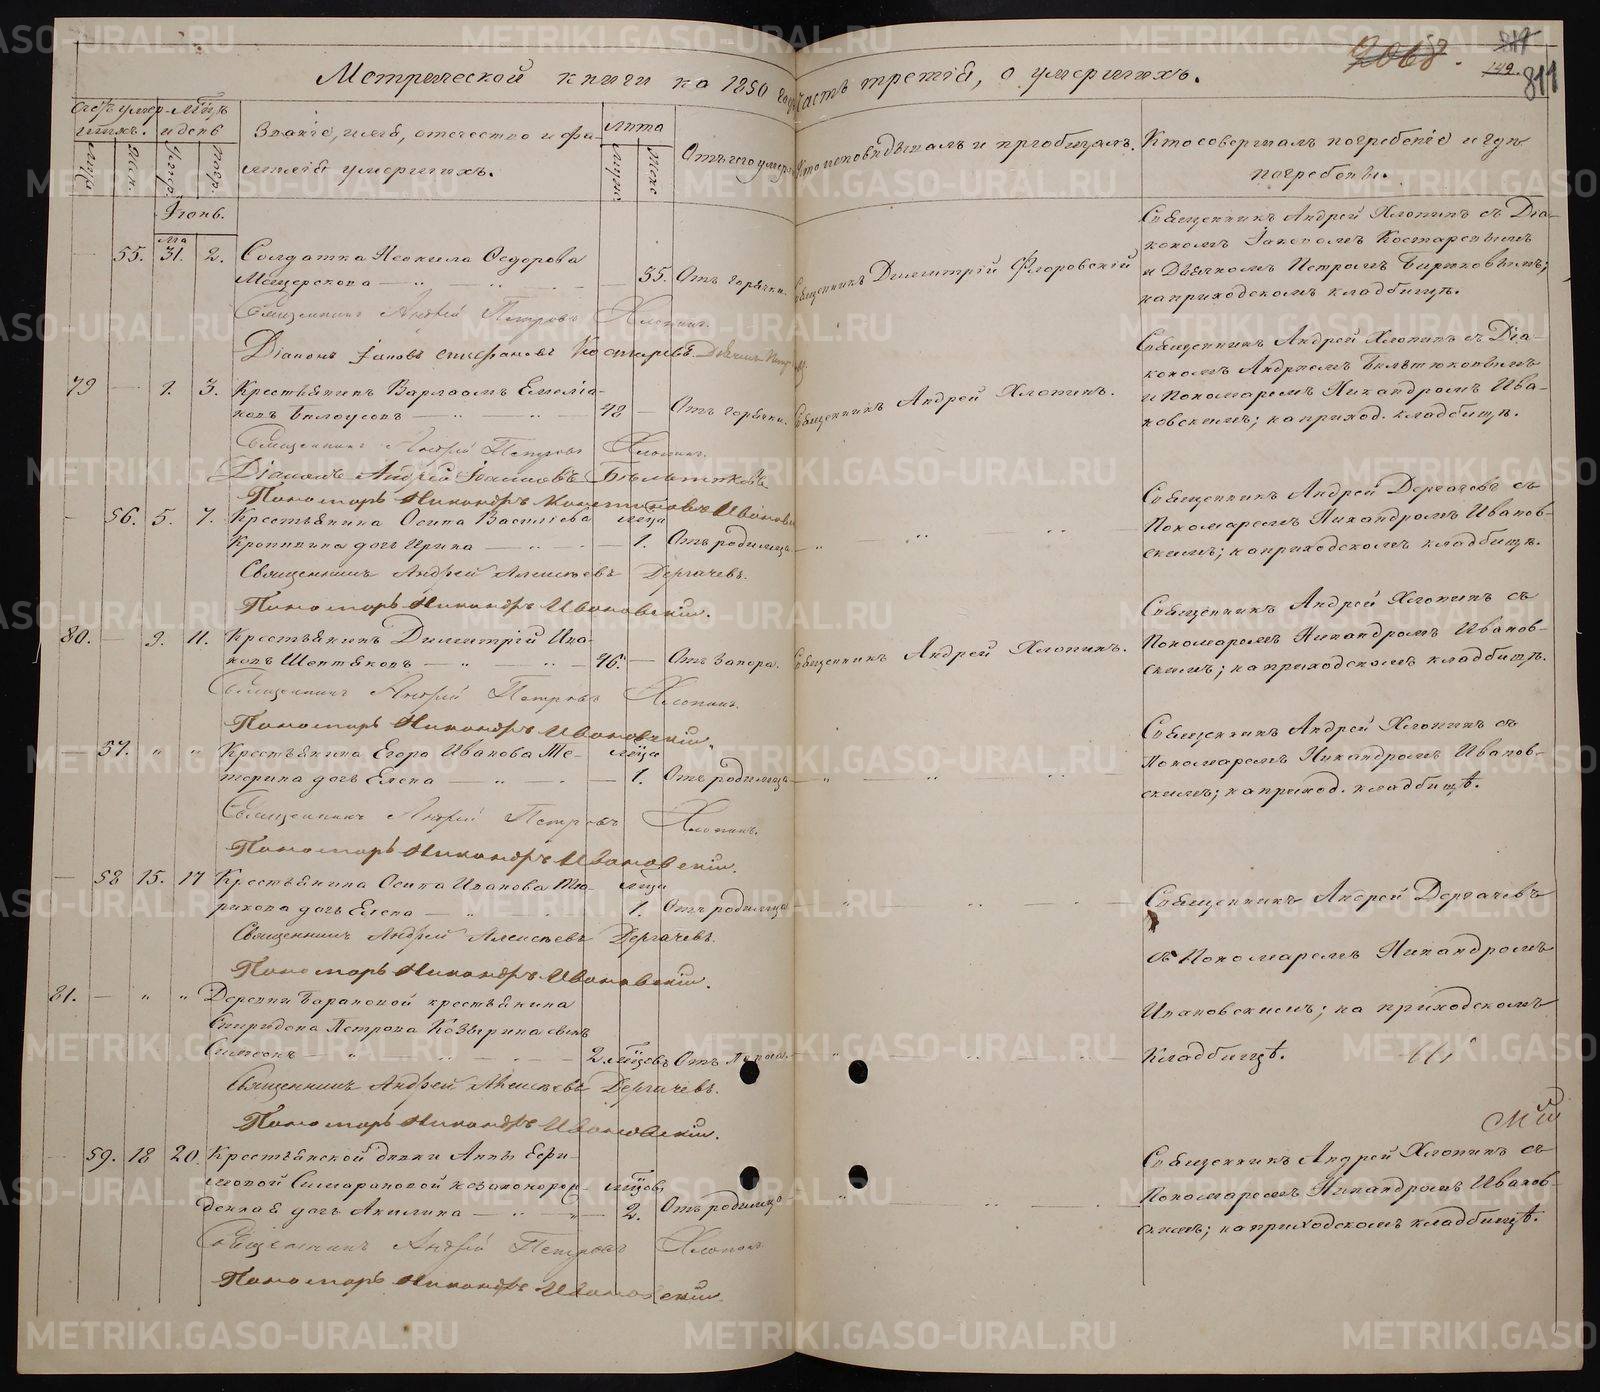 Метрической книги на 1850 годъ часть третія, о умершихъ.
811
Счетъ умершихъ.
Муж.
Жен.
Мѣць и день
Умер.
Погр.
Званіе, имя, отечество и фамилія умершихъ.
Лѣта
Муж.
Женс.
Отъ чего умеръ
Кто исповѣдывалъ и пріобщалъ.
Кто совершалъ погребеніе и гдѣ погребены.
55. 31. 2. Солдатка Неонила Ѳедорова
Мещерскова 35. Отъ горячки. Священникъ Димитрій Флоровскій
Священникъ Андрей Хлопинъ съ Діа-
кономъ Іаковомъ Костаревымъ
и Дьячкомъ Петромъ Бирюковымъ;
на приходскомъ кладбищѣ.
Священникъ Андрей Петровъ Хлопинъ.
Діаконъ Іаковъ Костаревъ
79 1. 3. Крестьянинъ Варлаамъ Емеліа-
новъ Бѣлоусовъ 48 Отъ горячки. Священникъ Андрей Хлопинъ.
Священникъ Андрей Хлопинъ съ Діа-
кономъ Андреемъ
и Пономаремъ Никандромъ Ива-
новскимъ; на приход. кладбищѣ.
Священникъ Андрей Петровъ Хлопинъ.
Діаконъ Андрей Іоанновъ
Пономарь Никандръ Ивановскій
56. 5. 7. Крестьянина Осипа Васильева мѣца
дочь Ирина 1. Отъ родимца
Священникъ Андрей Дергачевъ съ
Пономаремъ Никандромъ Иванов-
скимъ; на приходскомъ кладбищѣ.
Священникъ Андрей Алексѣевъ Дергачевъ.
Пономарь Никандръ Ивановскій.
80. 9. 11. Крестьянинъ Димитрій Ива-
новъ 46. Отъ запора. Священникъ Андрей Хлопинъ.
Священникъ Андрей Хлопинъ съ
Пономаремъ Никандромъ Иванов-
скимъ; на приходскомъ кладбищѣ.
Священникъ Андрей Петровъ Хлопинъ.
Пономарь Никандръ Ивановскій.
57. " " Крестьянина Егора Иванова Ме-
дочь Елена мѣца 1. Отъ родимца
Священникъ Андрей Хлопинъ съ
Пономаремъ Никандромъ Иванов-
скимъ; на приход. кладбищѣ.
Священникъ Андрей Петровъ Хлопинъ.
Пономарь Никандръ Ивановскій.
58 15. 17 Крестьянина Осипа Иванова мѣца
дочь Елена 1. Отъ родимца
Священникъ Андрей Дергачевъ
съ Пономаремъ Никандромъ
Ивановскимъ; на приходскомъ
кладбищѣ.
Священникъ Андрей Алексѣевъ Дергачевъ.
Пономарь Никандръ Ивановскій.
81. " " Деревни Барановой крестьянина
Спиридона Петрова Козырина сынъ
Симеонъ 2. мѣцовъ
Священникъ Андрей Алексѣевъ Дергачевъ.
Пономарь Никандръ Ивановскій.
59. 18 20. Крестьянской дѣвки Анны Ефи-
мовой незаконорож- мѣцовъ
денная дочь Акилина 2. Отъ родимца
Священникъ Андрей Хлопинъ съ
Пономаремъ Никандромъ Иванов-
скимъ; на приходскомъ кладбищѣ.
Священникъ Андрей Петровъ Хлопинъ
Пономарь Никандръ Ивановскій.
METRIKI.GASO-URAL.RU